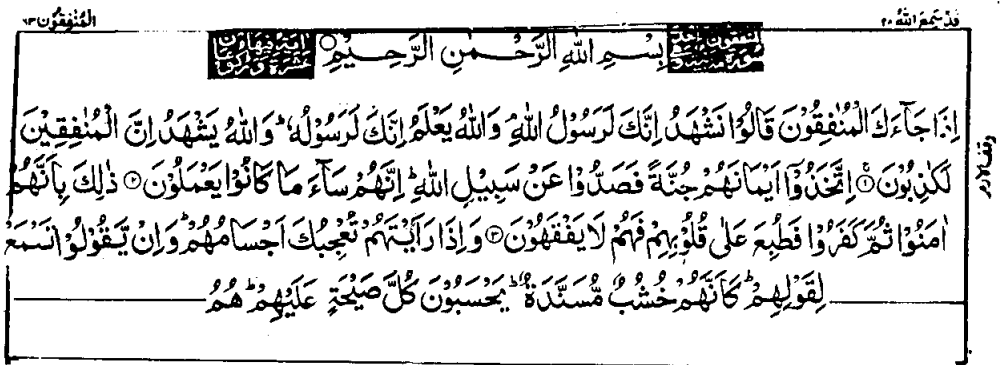 قَدْ سَمِعَ اللّٰهُ ٢٨
الْمُنٰفِقُوْن ٦٣
بِسْمِ اللّٰهِ الرَّحْمٰنِ الرَّحِيْمِ
اِذَا جَآءَكَ الْمُنٰفِقُوْنَ قَالُوْا نَشْهَدُ اِنَّكَ لَرَسُوْلُ اللّٰهِ ۘ وَاللّٰهُ يَعْلَمُ اِنَّكَ لَرَسُوْلُهٗ ؕ وَاللّٰهُ يَشْهَدُ اِنَّ الْمُنٰفِقِيْنَ
لَكٰذِبُوْنَ ۝١ اِتَّخَذُوْٓا اَيْمَانَهُمْ جُنَّةً فَصَدُّوْا عَنْ سَبِيْلِ اللّٰهِ ؕ اِنَّهُمْ سَآءَ مَا كَانُوْا يَعْمَلُوْنَ ۝٢ ذٰلِكَ بِاَنَّهُمْ
اٰمَنُوْا ثُمَّ كَفَرُوْا فَطُبِعَ عَلٰى قُلُوْبِهِمْ فَهُمْ لَا يَفْقَهُوْنَ ۝٣ وَاِذَا رَاَيْتَهُمْ تُعْجِبُكَ اَجْسَامُهُمْ ؕ وَاِنْ يَّقُوْلُوْا تَسْمَعْ
لِقَوْلِهِمْ ؕ كَاَنَّهُمْ خُشُبٌ مُّسَنَّدَةٌ ؕ يَحْسَبُوْنَ كُلَّ صَيْحَةٍ عَلَيْهِمْ ؕ هُمُ